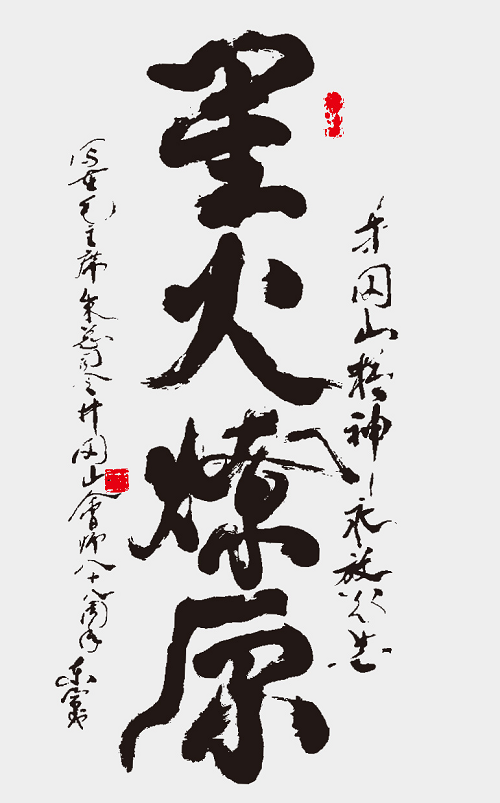 井冈山精神永放光芒
星火燎原
写在毛主席朱总司令井冈山会师八十八周年